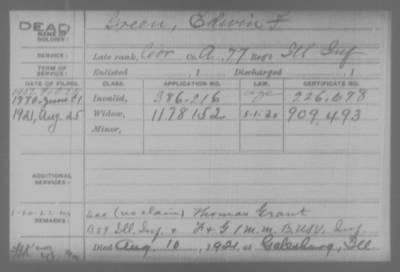 DEAD Green, Edwin F
NAME OF SOLDIER:
SERVICE: Late rank, Cor Co. A, 77 Reg't Ill Inf
TERM OF SERVICE: Enlisted , 1 Discharged , 1
DATE OF FILING. CLASS. APPLICATION NO. LAW. CERTIFICATE NO.
1880 June 1 Invalid, 386,216 age 226,698
1921, Aug 25 Widow, 1178152 5-1-20 909,493
Minor,
ADDITIONAL SERVICES:
see (no claim) Thomas Grant
B 89 Ill. Inf. & F & G 1 M. M. B. USV. Inf.
Died Aug. 10, 1921, at Galesburg, Ill